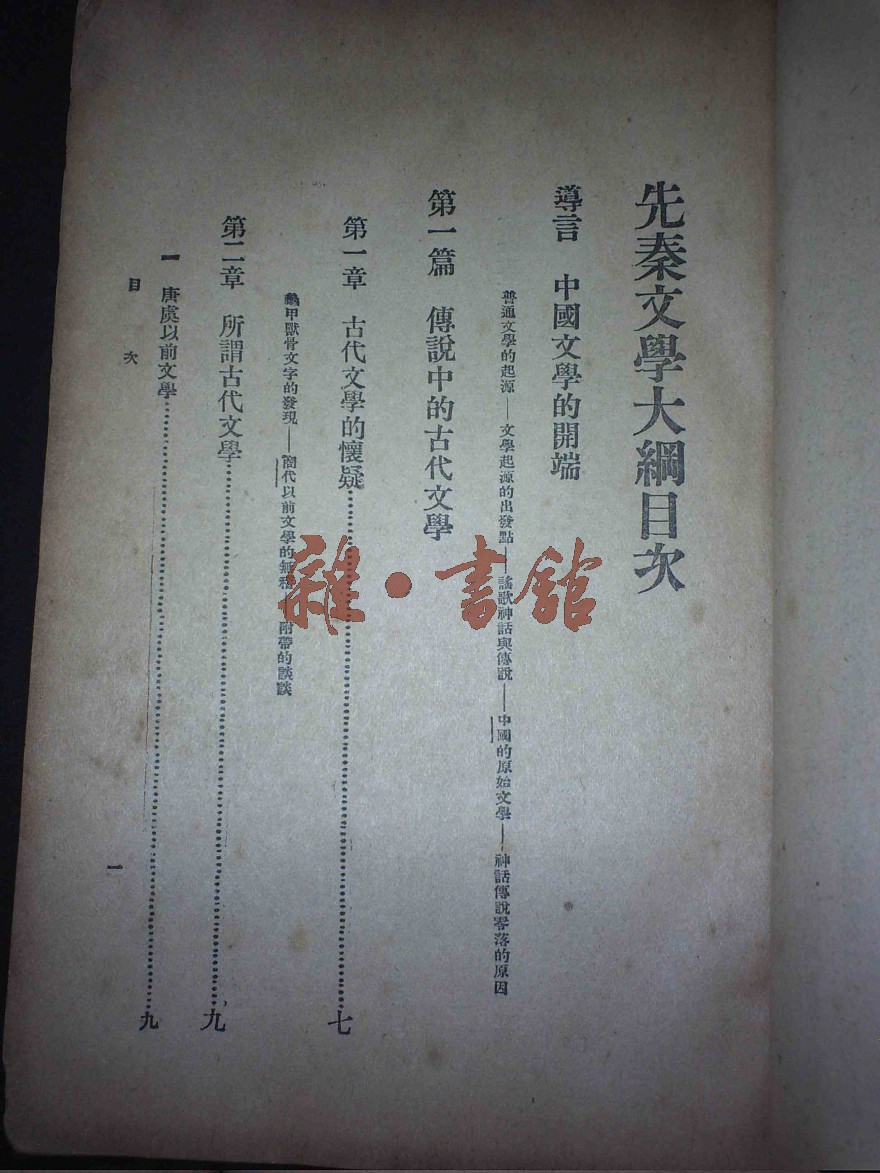 先秦文學大綱目次
導言　中國文學的開端
普通文學的起源——文學起源的出發點——謠歌神話與傳說——中國的原始文學——神話傳說零落的原因
第一篇　傳說中的古代文學
第一章　古代文學的懷疑……七
龜甲獸骨文字的發現——商代以前文學的無稽　附帶的談談
第二章　所謂古代文學……九
一　唐虞以前文學……九
目次　一
雜·書館